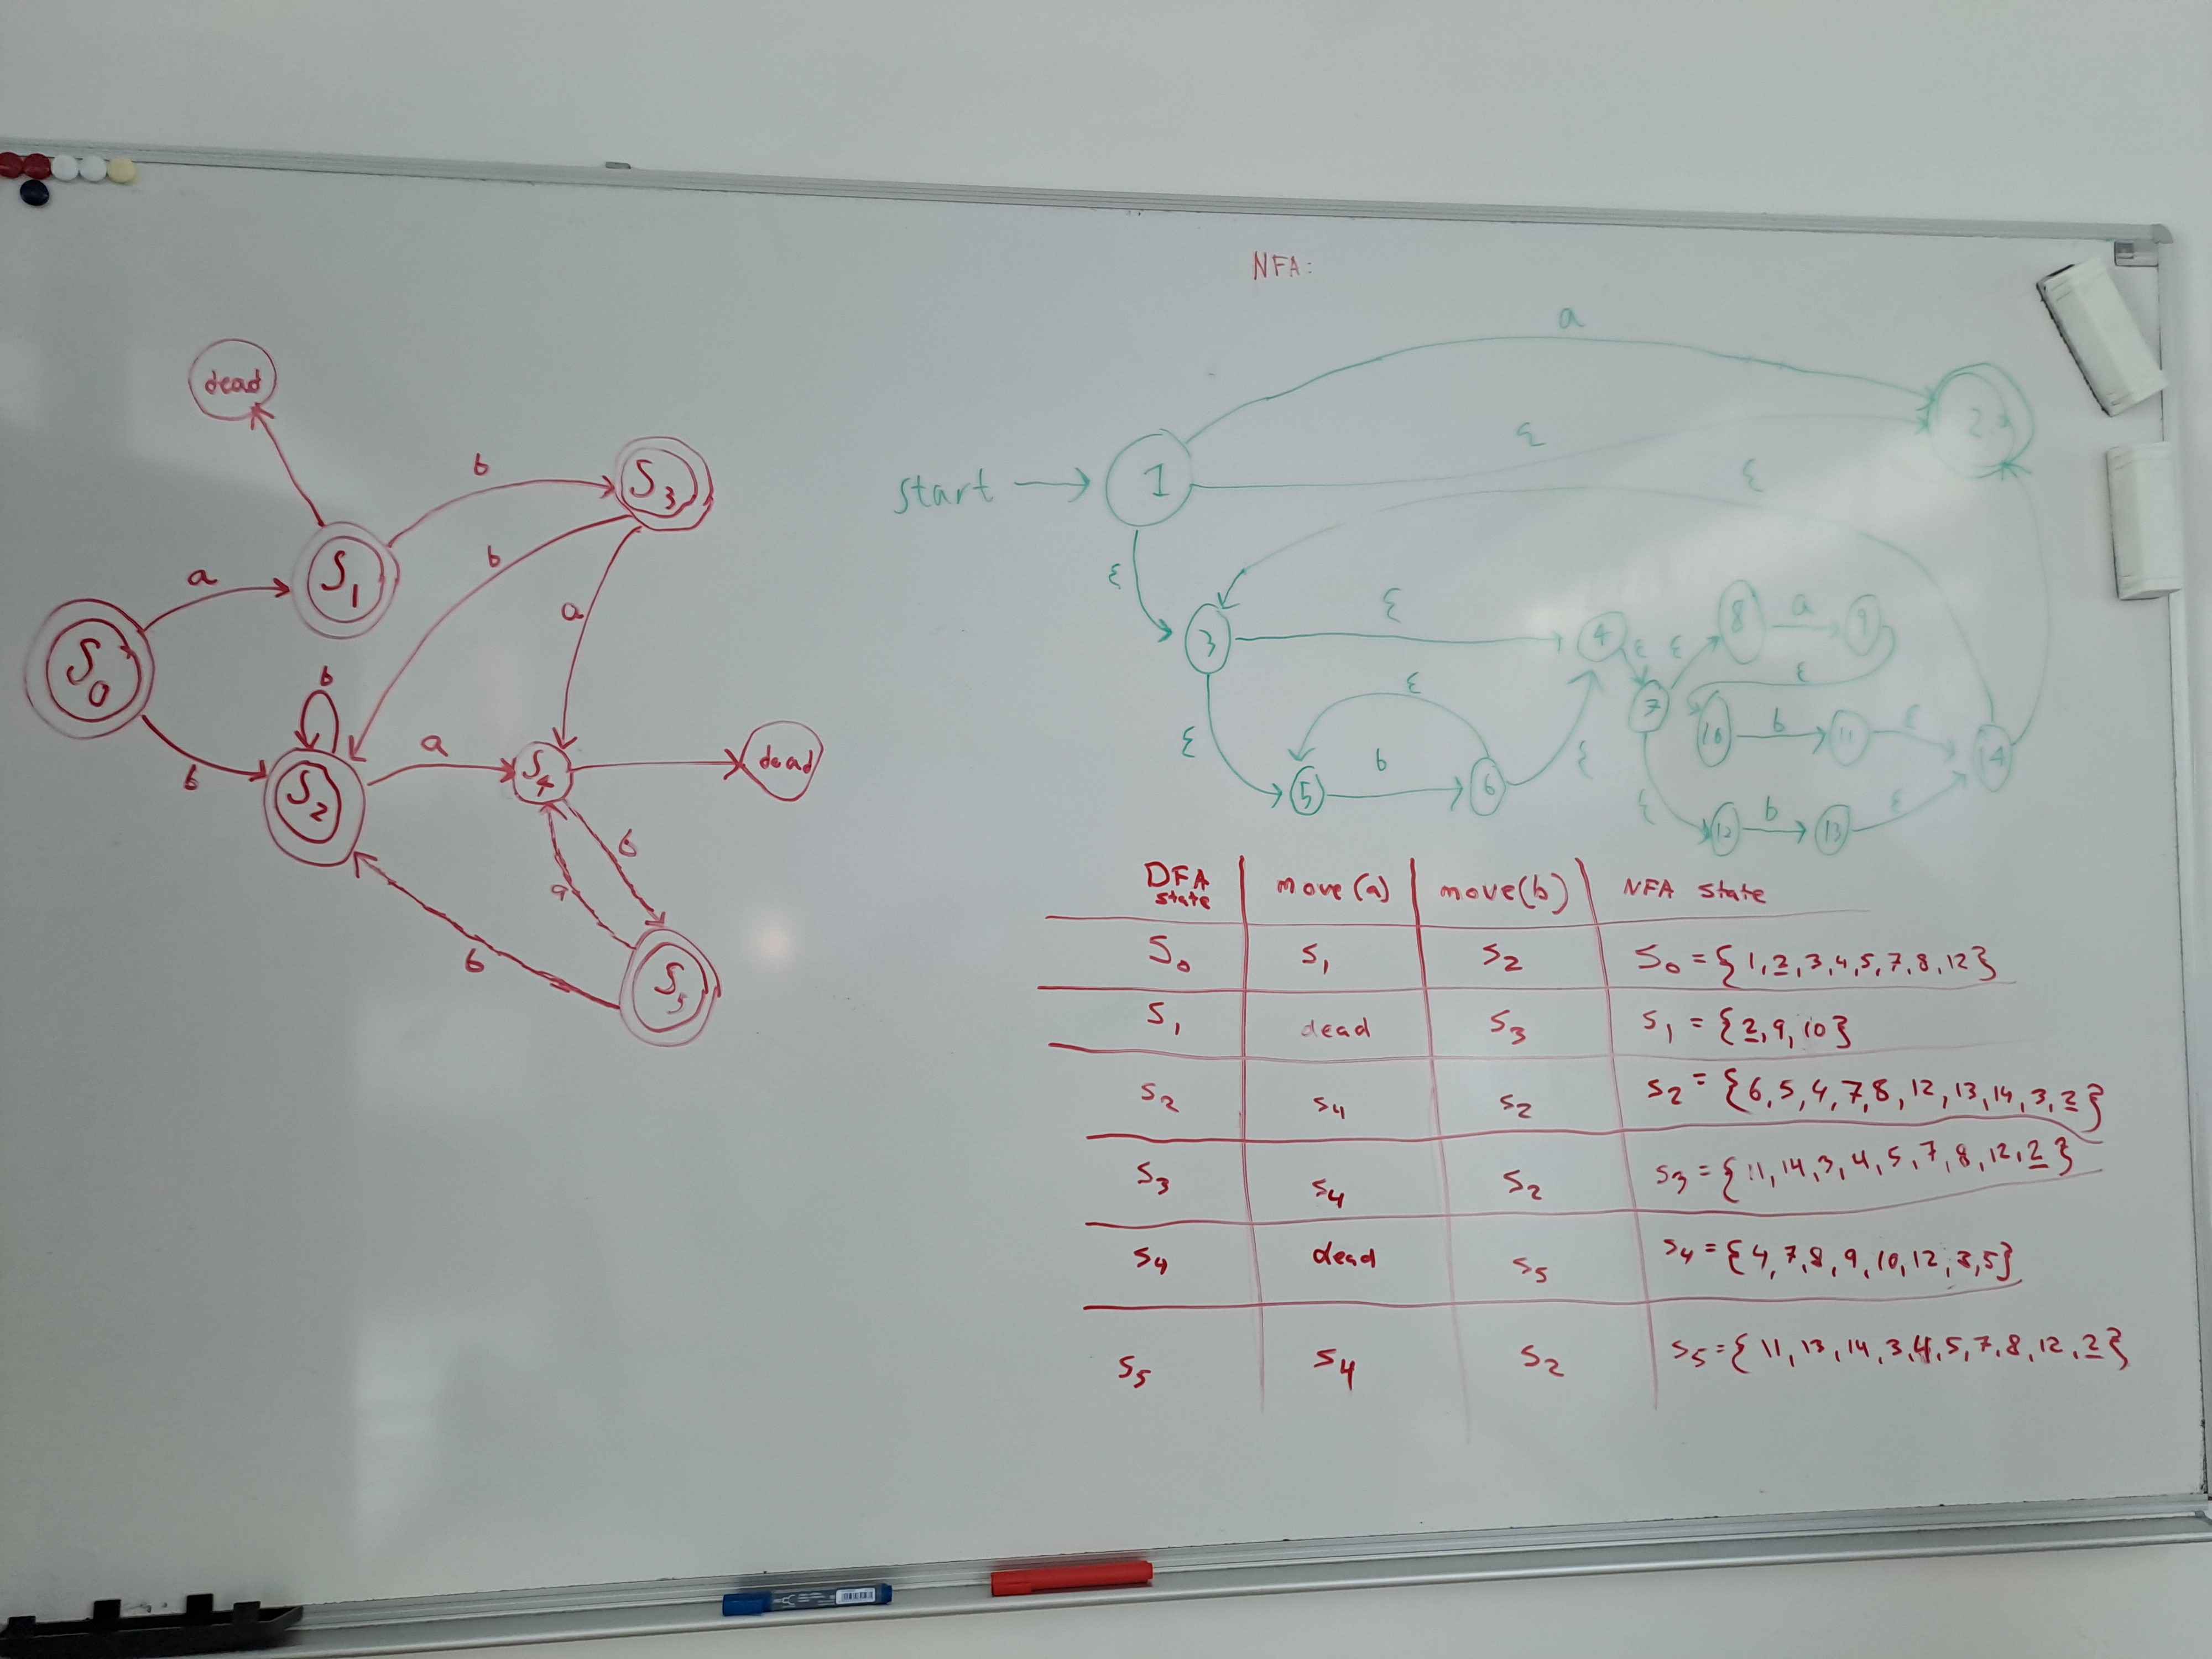 NFA:
dead
S₁
b
S₃
a
b
a
S₀
b
b
S₂
a
S₄
dead
b
a
b
S₅
start
1
a
ε
ε
2
ε
3
ε
4
ε
ε
8
a
9
ε
7
ε
5
b
6
ε
ε
10
b
11
ε
14
ε
12
b
13
ε
DFA state | move (a) | move (b) | NFA state
S₀ | S₁ | S₂ | S₀ = {1, 2, 3, 4, 5, 7, 8, 12}
S₁ | dead | S₃ | S₁ = {2, 9, 10}
S₂ | S₄ | S₂ | S₂ = {6, 5, 4, 7, 8, 12, 13, 14, 3, 2}
S₃ | S₄ | S₂ | S₃ = {11, 14, 3, 4, 5, 7, 8, 12, 2}
S₄ | dead | S₅ | S₄ = {4, 7, 8, 9, 10, 12, 3, 5}
S₅ | S₄ | S₂ | S₅ = {11, 13, 14, 3, 4, 5, 7, 8, 12, 2}